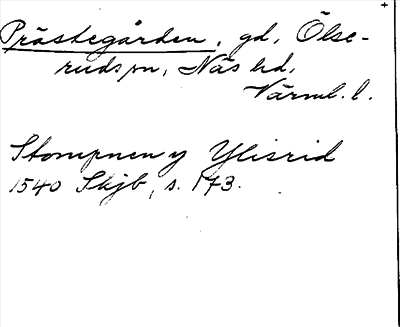 Prästegården, gd, Ölse-
rudspn, Näs hd,
Värml. l.
Stompnen y Ylisrid
1540 Skjb, s. 173.